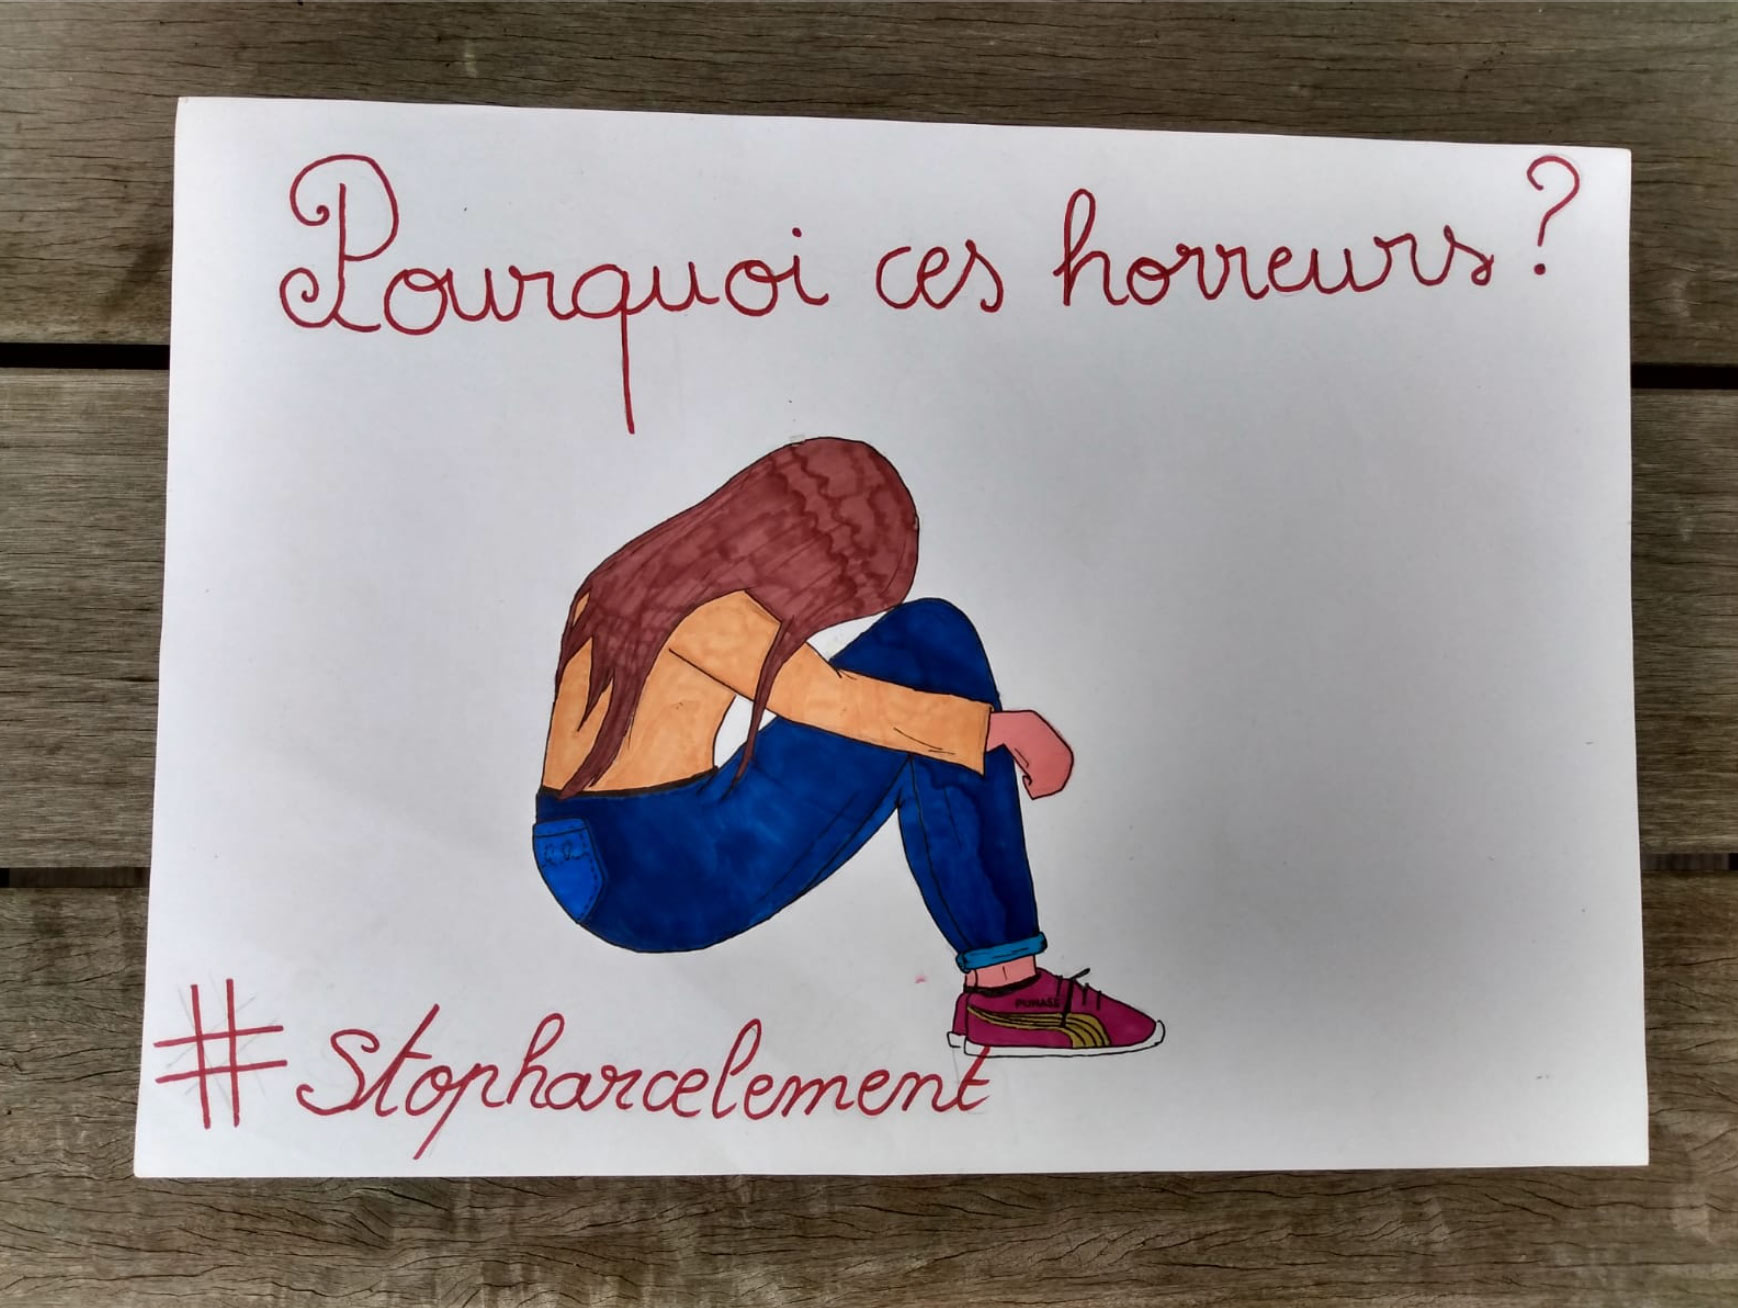 Pourquoi ces horreurs ?
#Stopharcelement